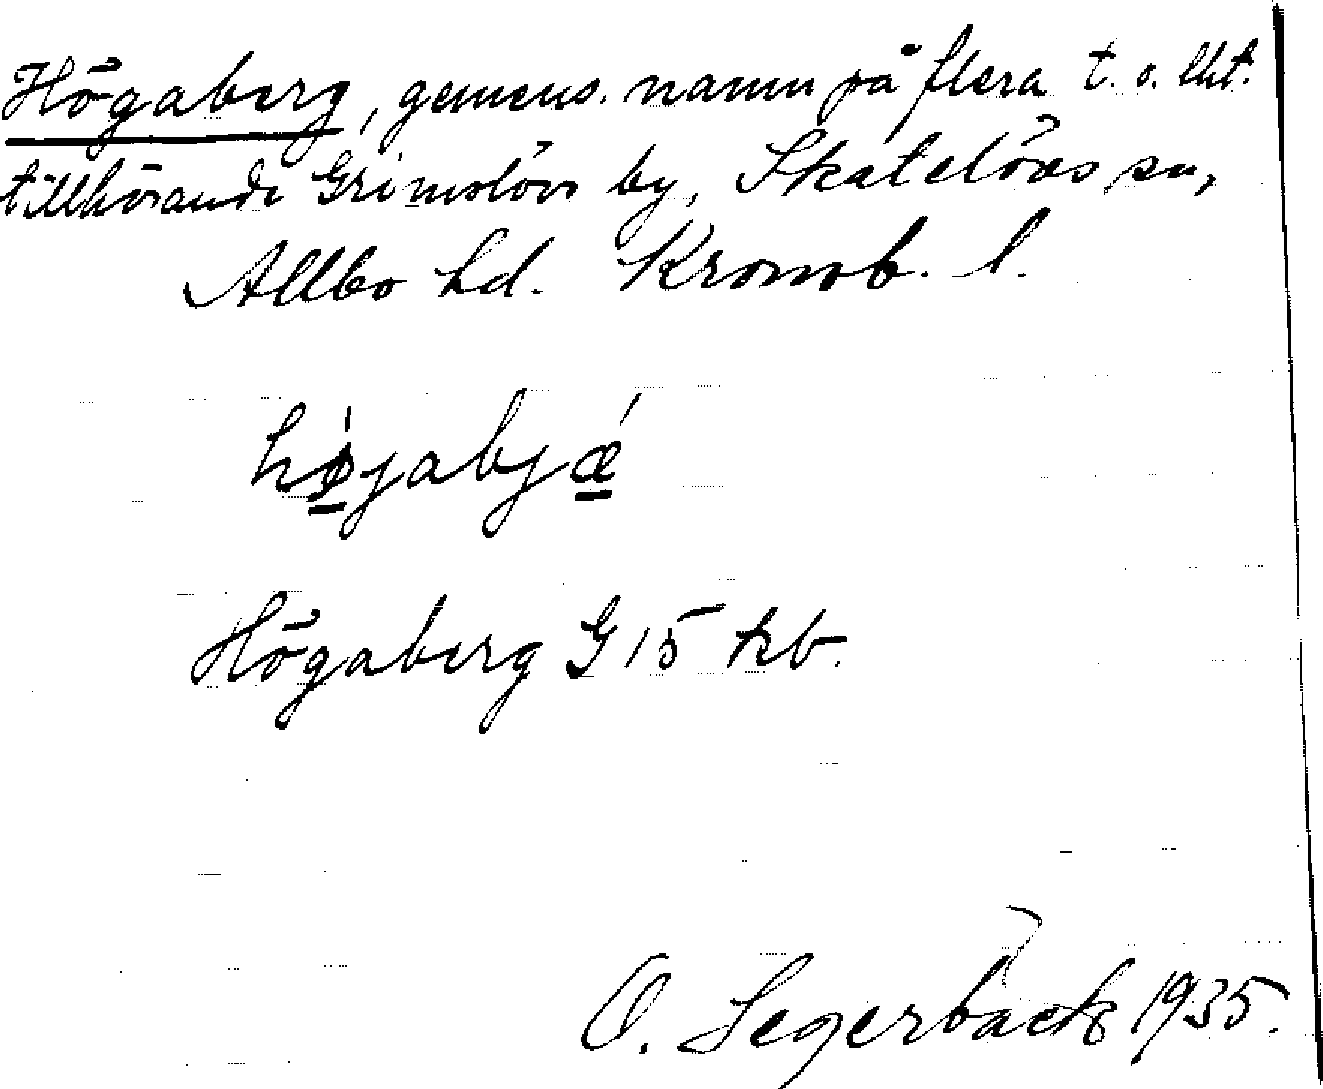 Högaberg, gemens. namn på flera t. o. lht.
tillhörande Grimslövs by, Skatelövs sn,
Allbo hd. Kronob. l.
hø̀jabjǽ
Högaberg G 15 kb.
O. Segerbäck 1935.